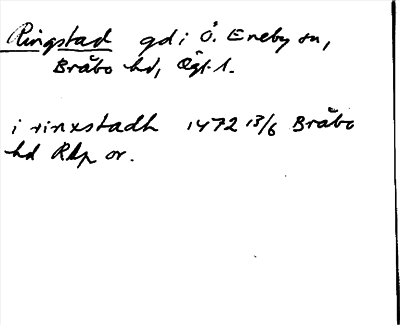 Ringstad gd i Ö. Eneby sn,
Bråbo hd, Ögl.
i rinxstadh 1472 13/6 Bråbo
hd Rap or.